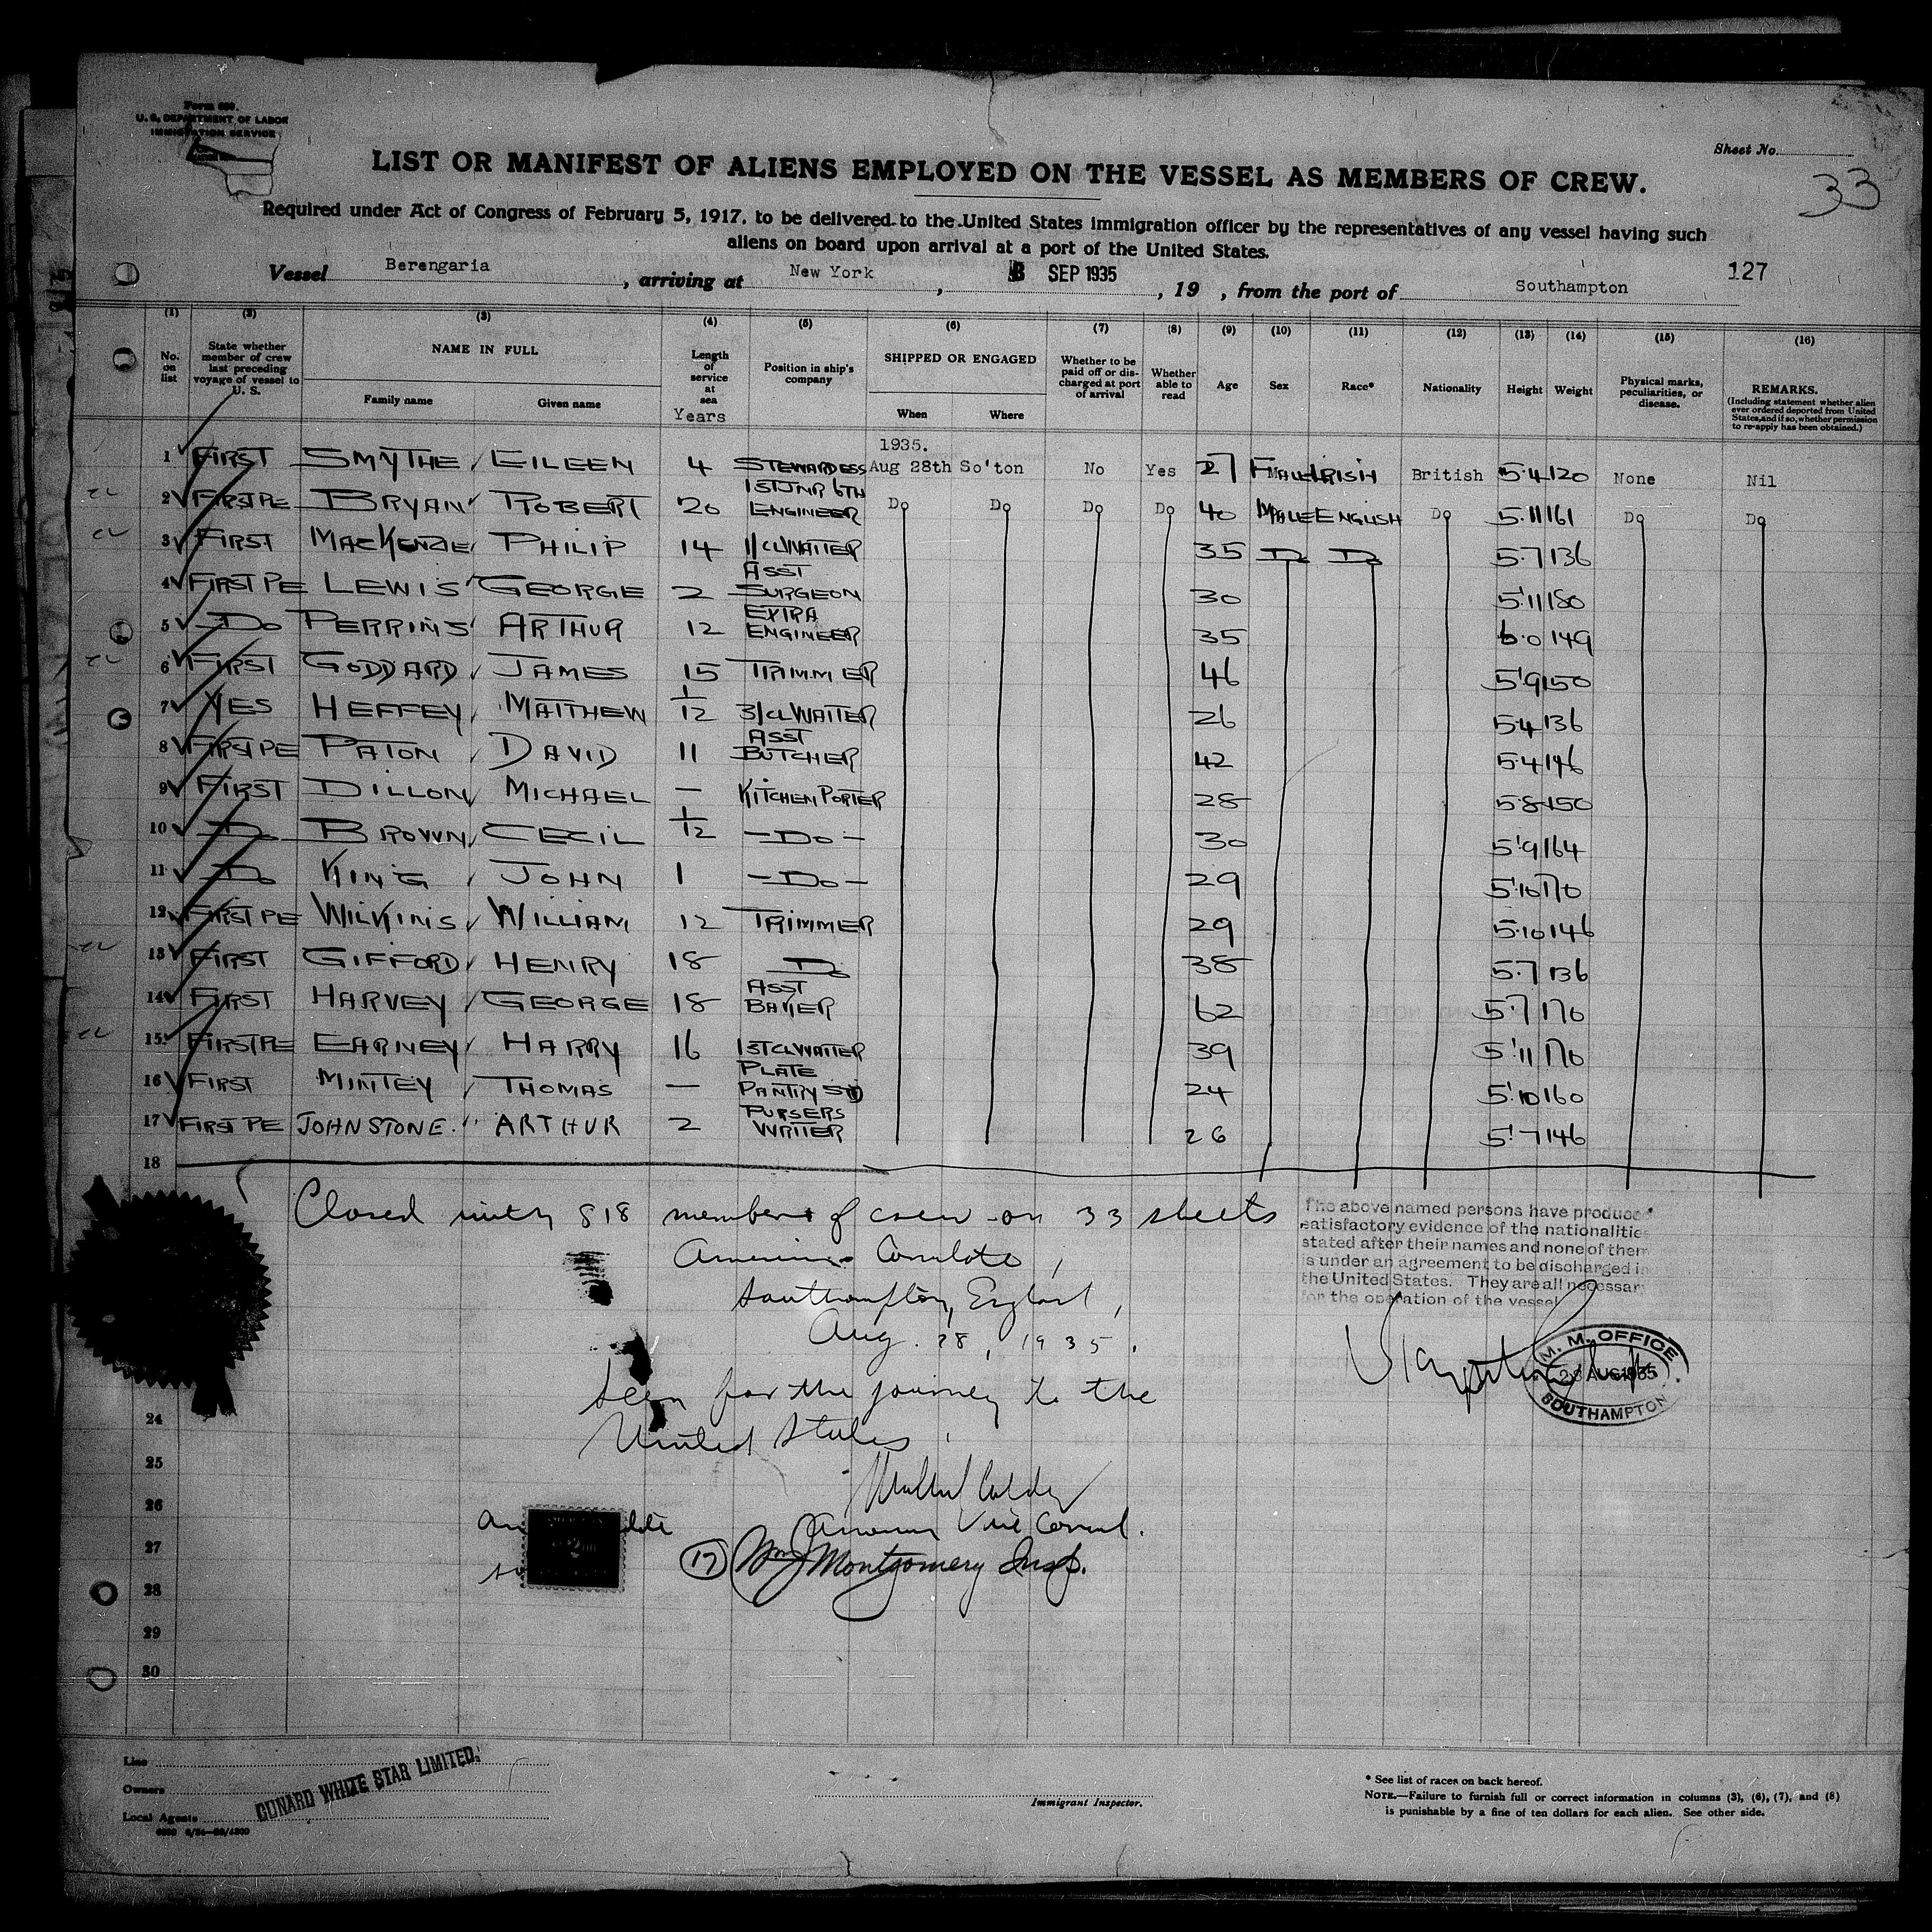 Form 680.
U. S. DEPARTMENT OF LABOR
IMMIGRATION SERVICE
Sheet No.
33
LIST OR MANIFEST OF ALIENS EMPLOYED ON THE VESSEL AS MEMBERS OF CREW.
Required under Act of Congress of February 5, 1917, to be delivered to the United States immigration officer by the representatives of any vessel having such
aliens on board upon arrival at a port of the United States.
127
Vessel Berengaria, arriving at New York, SEP 1935, 19 , from the port of Southampton
(1) (2) (3) (4) (5) (6) (7) (8) (9) (10) (11) (12) (13) (14) (15) (16)
No. on list State whether member of crew last preceding voyage of vessel to U. S. NAME IN FULL Family name Given name Length of service at sea Years Position in ship's company SHIPPED OR ENGAGED When Where Whether to be paid off or discharged at port of arrival Whether able to read Age Sex Race* Nationality Height Weight Physical marks, peculiarities, or disease. REMARKS. (Including statement whether alien ever ordered deported from United States, and if so, whether permission to re-apply has been obtained.)
1935.
1 FIRST SMYTHE EILEEN 4 STEWARDESS Aug 28th So'ton No Yes 27 FMALE IRISH British 5·4 120 None Nil
2 FIRST PE BRYAN ROBERT 20 1ST JNR 6TH ENGINEER Do Do Do Do 40 MALE ENGLISH Do 5·11 161 Do Do
3 FIRST MACKENZIE PHILIP 14 1/CL WAITER 35 Do Do 5·7 136
4 FIRST PE LEWIS GEORGE 2 ASST SURGEON 30 5'11 180
5 Do PERRINS ARTHUR 12 EXTRA ENGINEER 35 6·0 149
6 FIRST GODDARD JAMES 15 TRIMMER 46 5'9 150
7 YES HEFFEY MATTHEW 1/12 3/CL WAITER 26 5·4 136
8 FIRST PE PATON DAVID 11 ASST BUTCHER 42 5·4 146
9 FIRST DILLON MICHAEL — KITCHEN PORTER 28 5·8 150
10 Do BROWN CECIL 1/12 —Do— 30 5'9 164
11 Do KING JOHN 1 —Do— 29 5'10 170
12 FIRST PE WILKINS WILLIAM 12 TRIMMER 29 5·10 146
13 FIRST GIFFORD HENRY 18 Do 38 5·7 136
14 FIRST HARVEY GEORGE 18 ASST BAKER 62 5·7 170
15 FIRST PE EARNEY HARRY 16 1ST CL WAITER 39 5'11 170
16 FIRST MINTEY THOMAS — PLATE PANTRY STD 24 5'10 160
17 FIRST PE JOHNSTONE ARTHUR 2 PURSERS WRITER 26 5'7 146
18
Closed with 818 members of crew on 33 sheets
American Consulate,
Southampton, England,
Aug. 28, 1935.
Seen for the journey to the
United States.
The above named persons have produced
satisfactory evidence of the nationalities
stated after their names and none of them
is under an agreement to be discharged in
the United States. They are all necessary
for the operation of the vessel
M. M. OFFICE
28 AUG 1935
SOUTHAMPTON
American Vice Consul.
17 Wm J Montgomery Insp.
24
25
26
27
28
29
30
Line
Owners
Local Agents
CUNARD WHITE STAR LIMITED.
Immigrant Inspector.
* See list of races on back hereof.
NOTE.—Failure to furnish full or correct information in columns (3), (6), (7), and (8)
is punishable by a fine of ten dollars for each alien. See other side.